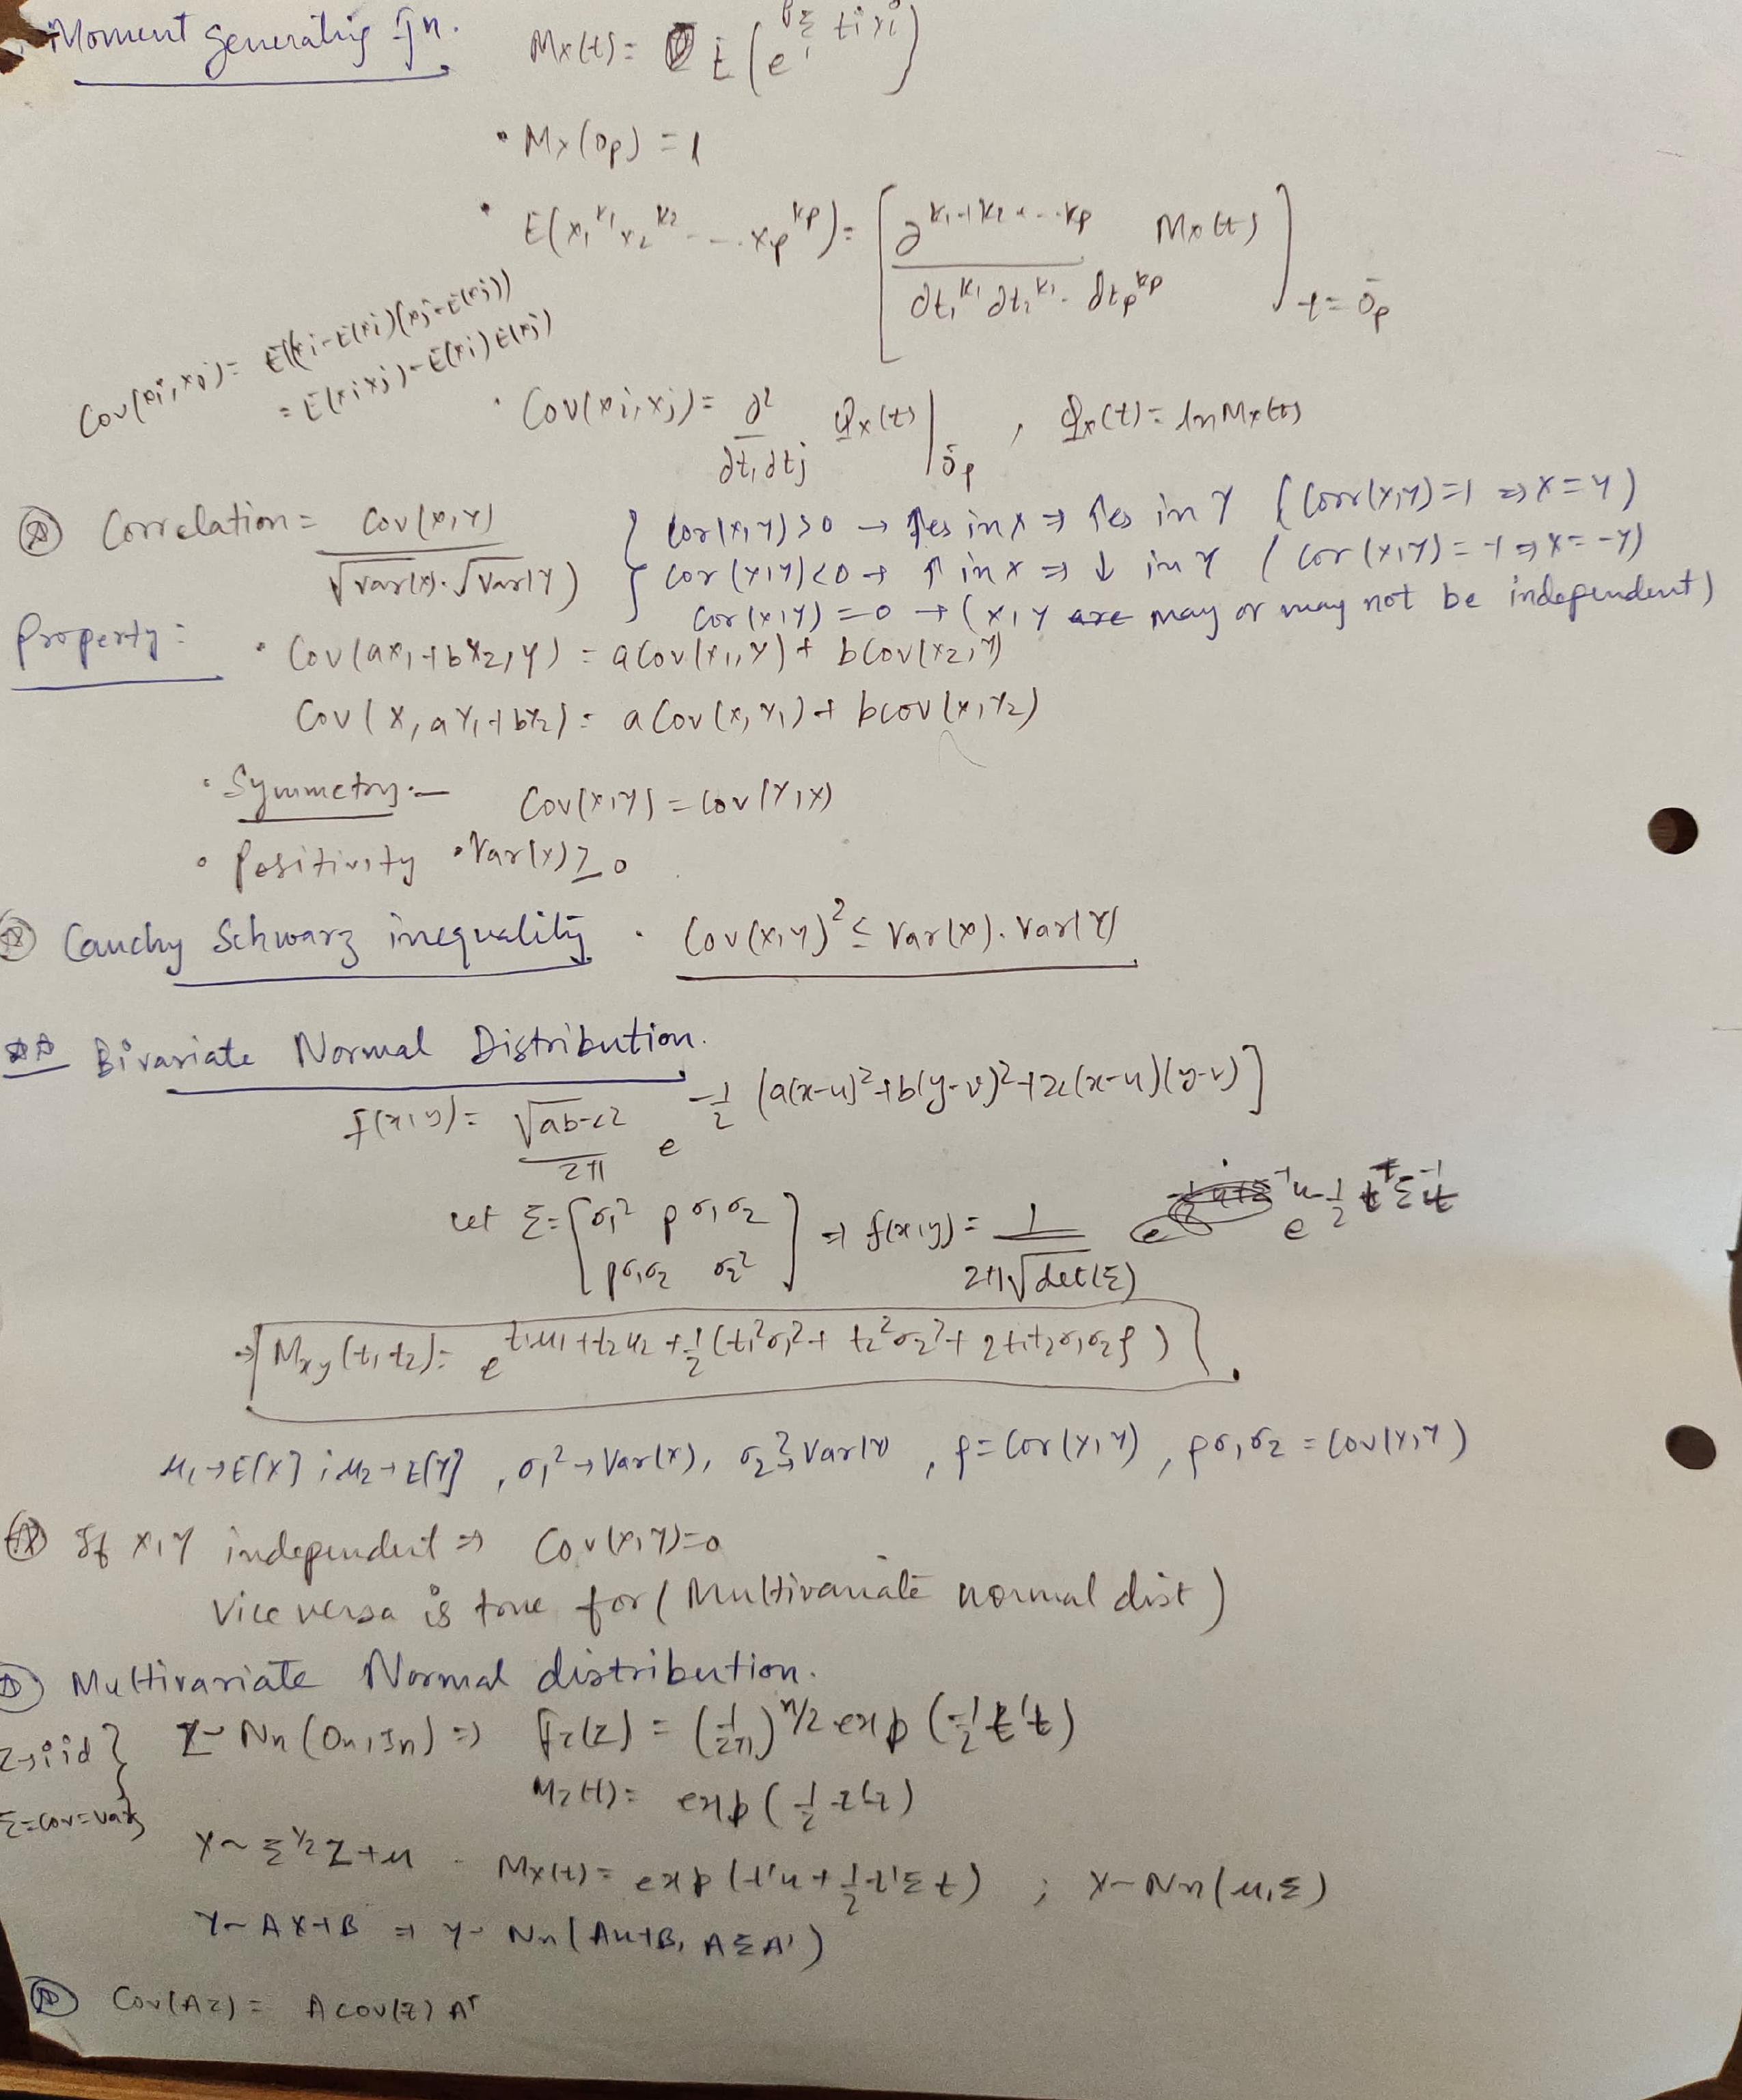 Moment generating fn. Mx(t) = E(e^{Σ_1^p tixi})
• Mx(0p) = 1
• E(x1^{k1} x2^{k2} ... xp^{kp}) = [∂^{k1+k2+...kp} Mx(t) / ∂t1^{k1} ∂t2^{k1}. ∂tp^{kp}]_{t=0p}
Cov(xi, xj) = E((xi-E(xi)(xj-E(xj))
= E(xixj) - E(xi)E(xj)
• Cov(xi,xj) = ∂² / ∂ti∂tj Φx(t)|_{0p} , Φx(t) = ln Mx(t)
Correlation = Cov(x,y) / √var(x).√var(y)
{ Cor(x,y)>0 → ↑es in x ⇒ ↑es in Y (Corr(x,y)=1 ⇒ x=y)
Cor(x,y)<0 → ↑ in x ⇒ ↓ in Y (Cor(x,y)=-1 ⇒ x=-y)
Cor(x,y)=0 → (x,y are may or may not be independent)
Property:
• Cov(ax1+bx2,y) = aCov(x1,y) + bCov(x2,y)
Cov(x, aY1+bY2) = aCov(x,Y1) + bcov(x,Y2)
• Symmetry:- Cov(x,y) = Cov(Y,x)
• Positivity • Var(x) ≥ 0
Cauchy Schwarz inequality. Cov(x,y)² ≤ Var(x). Var(Y)
Bivariate Normal Distribution.
f(x,y) = √ab-c² / 2π e^{-1/2 (a(x-u)²+b(y-v)²+2c(x-u)(y-v)]}
Let Σ = [σ1² ρσ1σ2 ρσ1σ2 σ2²] ⇒ f(x,y) = 1 / 2π√det(Σ) e^{-1/2 t^T Σ^{-1} t}
⇒ Mxy(t1,t2) = e^{t1u1+t2u2+1/2(t1²σ1²+t2²σ2²+2t1t2σ1σ2ρ)}.
u1→E[X] ; u2→E[Y] , σ1²→Var(x), σ2²→Var(Y) , ρ=Cor(x,y) , ρσ1σ2 = Cov(x,y)
If x,y independent ⇒ Cov(x,y)=0
Vice versa is true for (Multivariate normal dist)
Multivariate Normal distribution.
Z→iid } Z~Nn(0n,In) ⇒ fz(z) = (1/2π)^{n/2} exp(-1/2 t't)
Mz(t) = exp(1/2 t't)
Σ=cov=var
X~Σ^{1/2}Z+u . Mx(t) = exp(t'u+1/2 t'Σt) ; X~Nn(u,Σ)
Y~AX+B ⇒ Y~Nn(Au+B, AΣA')
Cov(AZ) = A cov(Z) A^T